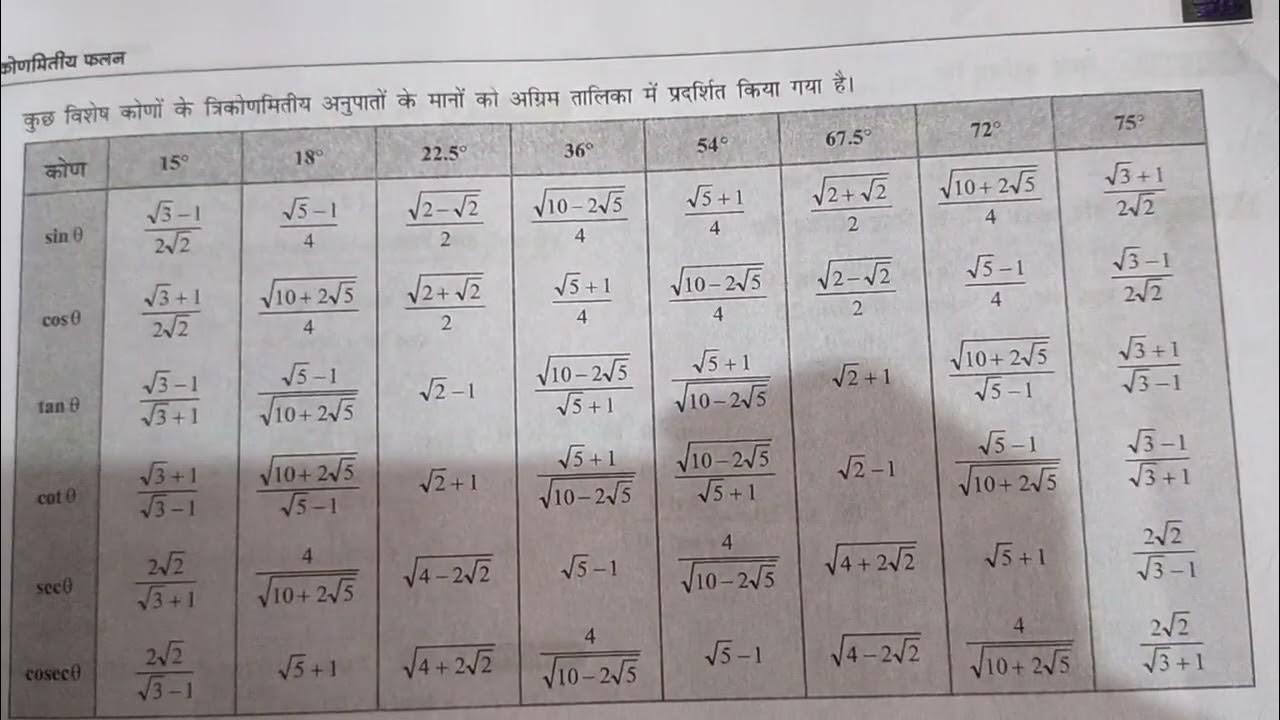 कोणमितीय फलन
कुछ विशेष कोणों के त्रिकोणमितीय अनुपातों के मानों को अग्रिम तालिका में प्रदर्शित किया गया है।
कोण 15° 18° 22.5° 36° 54° 67.5° 72° 75°
sin θ (√3−1)/(2√2) (√5−1)/4 √(2−√2)/2 √(10−2√5)/4 (√5+1)/4 √(2+√2)/2 √(10+2√5)/4 (√3+1)/(2√2)
cos θ (√3+1)/(2√2) √(10+2√5)/4 √(2+√2)/2 (√5+1)/4 √(10−2√5)/4 √(2−√2)/2 (√5−1)/4 (√3−1)/(2√2)
tan θ (√3−1)/(√3+1) (√5−1)/√(10+2√5) √2−1 √(10−2√5)/(√5+1) (√5+1)/√(10−2√5) √2+1 √(10+2√5)/(√5−1) (√3+1)/(√3−1)
cot θ (√3+1)/(√3−1) √(10+2√5)/(√5−1) √2+1 (√5+1)/√(10−2√5) √(10−2√5)/(√5+1) √2−1 (√5−1)/√(10+2√5) (√3−1)/(√3+1)
secθ 2√2/(√3+1) 4/√(10+2√5) √(4−2√2) √5−1 4/√(10−2√5) √(4+2√2) √5+1 2√2/(√3−1)
cosecθ 2√2/(√3−1) √5+1 √(4+2√2) 4/√(10−2√5) √5−1 √(4−2√2) 4/√(10+2√5) 2√2/(√3+1)